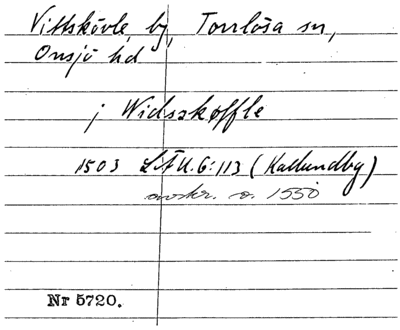 Vittskövle, by, Torrlösa sn,
Onsjö hd
j Widsskøffle
1503 LÄU.G:113 (Kallundby)
avskr. o. 1550
Nr 5720.